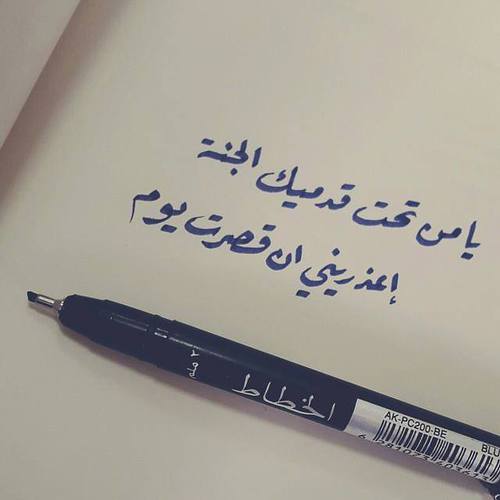 يا من تحت قدميك الجنة
إعذريني ان قصرت يوم
الخطاط
٢ ملم
AK-PC200-BE
BLU